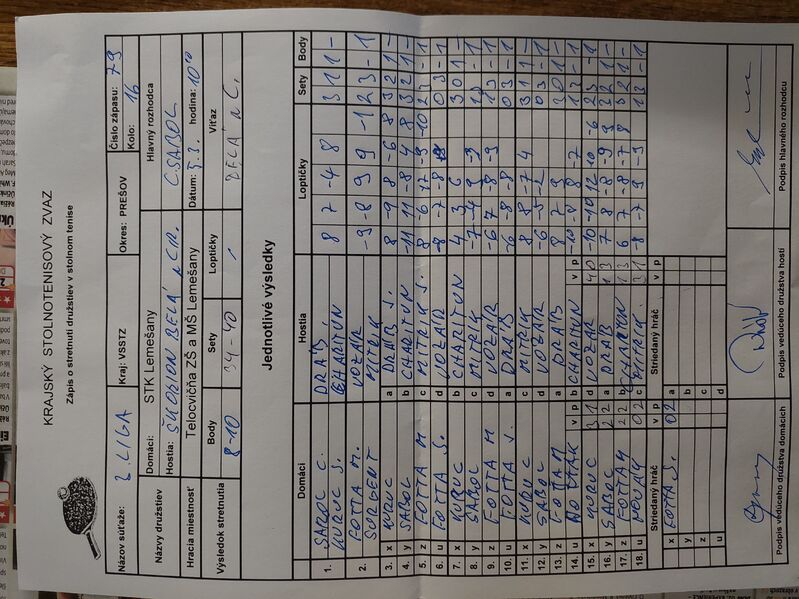 KRAJSKÝ STOLNOTENISOVÝ ZVAZ
Zápis o stretnutí družstiev v stolnom tenise
Názov súťaže: 3. LIGA Kraj: VSSTZ Okres: PREŠOV Číslo zápasu: 79
Kolo: 16
Názvy družstiev Domáci: STK Lemešany Hlavný rozhodca
Hostia: ŠKORION BELÁ n CIR. C. SABOL
Hracia miestnosť Telocvičňa ZŠ a MŠ Lemešany Dátum: 5.3. hodina: 10⁰⁰
Výsledok stretnutia Body Sety Loptičky Víťaz
8-10 34-40 / BELÁ n C.
Jednotlivé výsledky
Domáci Hostia Loptičky Sety Body
1. SABOL C. DRÁB J. 8 7 -4 8 3 1 1 -
KURUC S. CHARITUN
2. FOTTA M. VOZÁR -9 -8 9 9 -12 2 3 - 1
SURGENT MITRIK
3. x KURUC a DRÁB J. 8 -9 8 -6 8 3 2 1 -
4. y SABOL b CHARITUN -11 11 -8 4 8 3 2 1 -
5. z FOTTA M c MITRIK S. 8 -6 17 -9 -10 2 3 - 1
6. u FOTTA S. d VOZÁR -8 -7 -8 0 3 - 1
7. x KURUC b CHARITUN 4 3 6 3 0 1 -
8. y SABOL c MITRIK
9. z FOTTA M d VOZÁR -6 7 -8 -9 1 3 - 1
10. u FOTTA J. a DRÁB -6 -8 -8 0 3 - 1
11. x KURUC c MITRIK 8 8 -7 4 3 1 1 -
12. y SABOL d VOZÁR -6 -5 -2 0 3 - 1
13. z FOTTA M a DRÁB 8 7 9 3 0 1 -
14. u b CHARITUN -10 -9 8 -7 1 3 - 1
v p v p
15. x KURUC 31 d VOZÁR 40 -10 -10 12 10 -6 2 3 - 1
16. y SABOL 22 a DRÁB 13 7 8 -8 9 3 1 1 -
17. z FOTTA M 22 b CHARITON 13 6 7 -8 -7 8 3 2 1 -
18. u 02 c MITRIK 31 -8 -7 9 -3 1 3 - 1
Striedaný hráč v p Striedaný hráč v p
x FOTTA S. 02 a
y b
z c
u d
Podpis vedúceho družstva domácich Podpis vedúceho družstva hostí Podpis hlavného rozhodcu